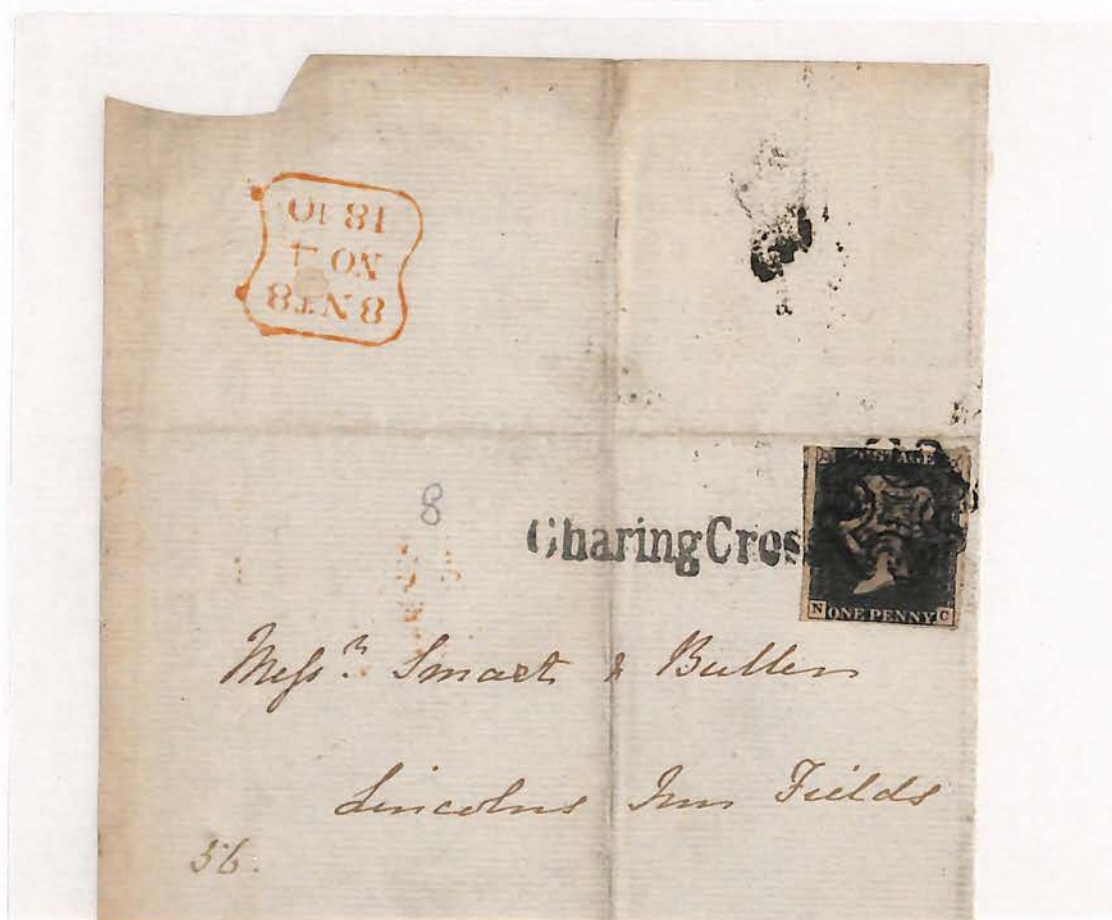 8NT8
NO 4
1840
8
Charing Cros
POSTAGE
N ONE PENNY C
Messrs Smart & Buller
Lincolns Inn Fields
56.